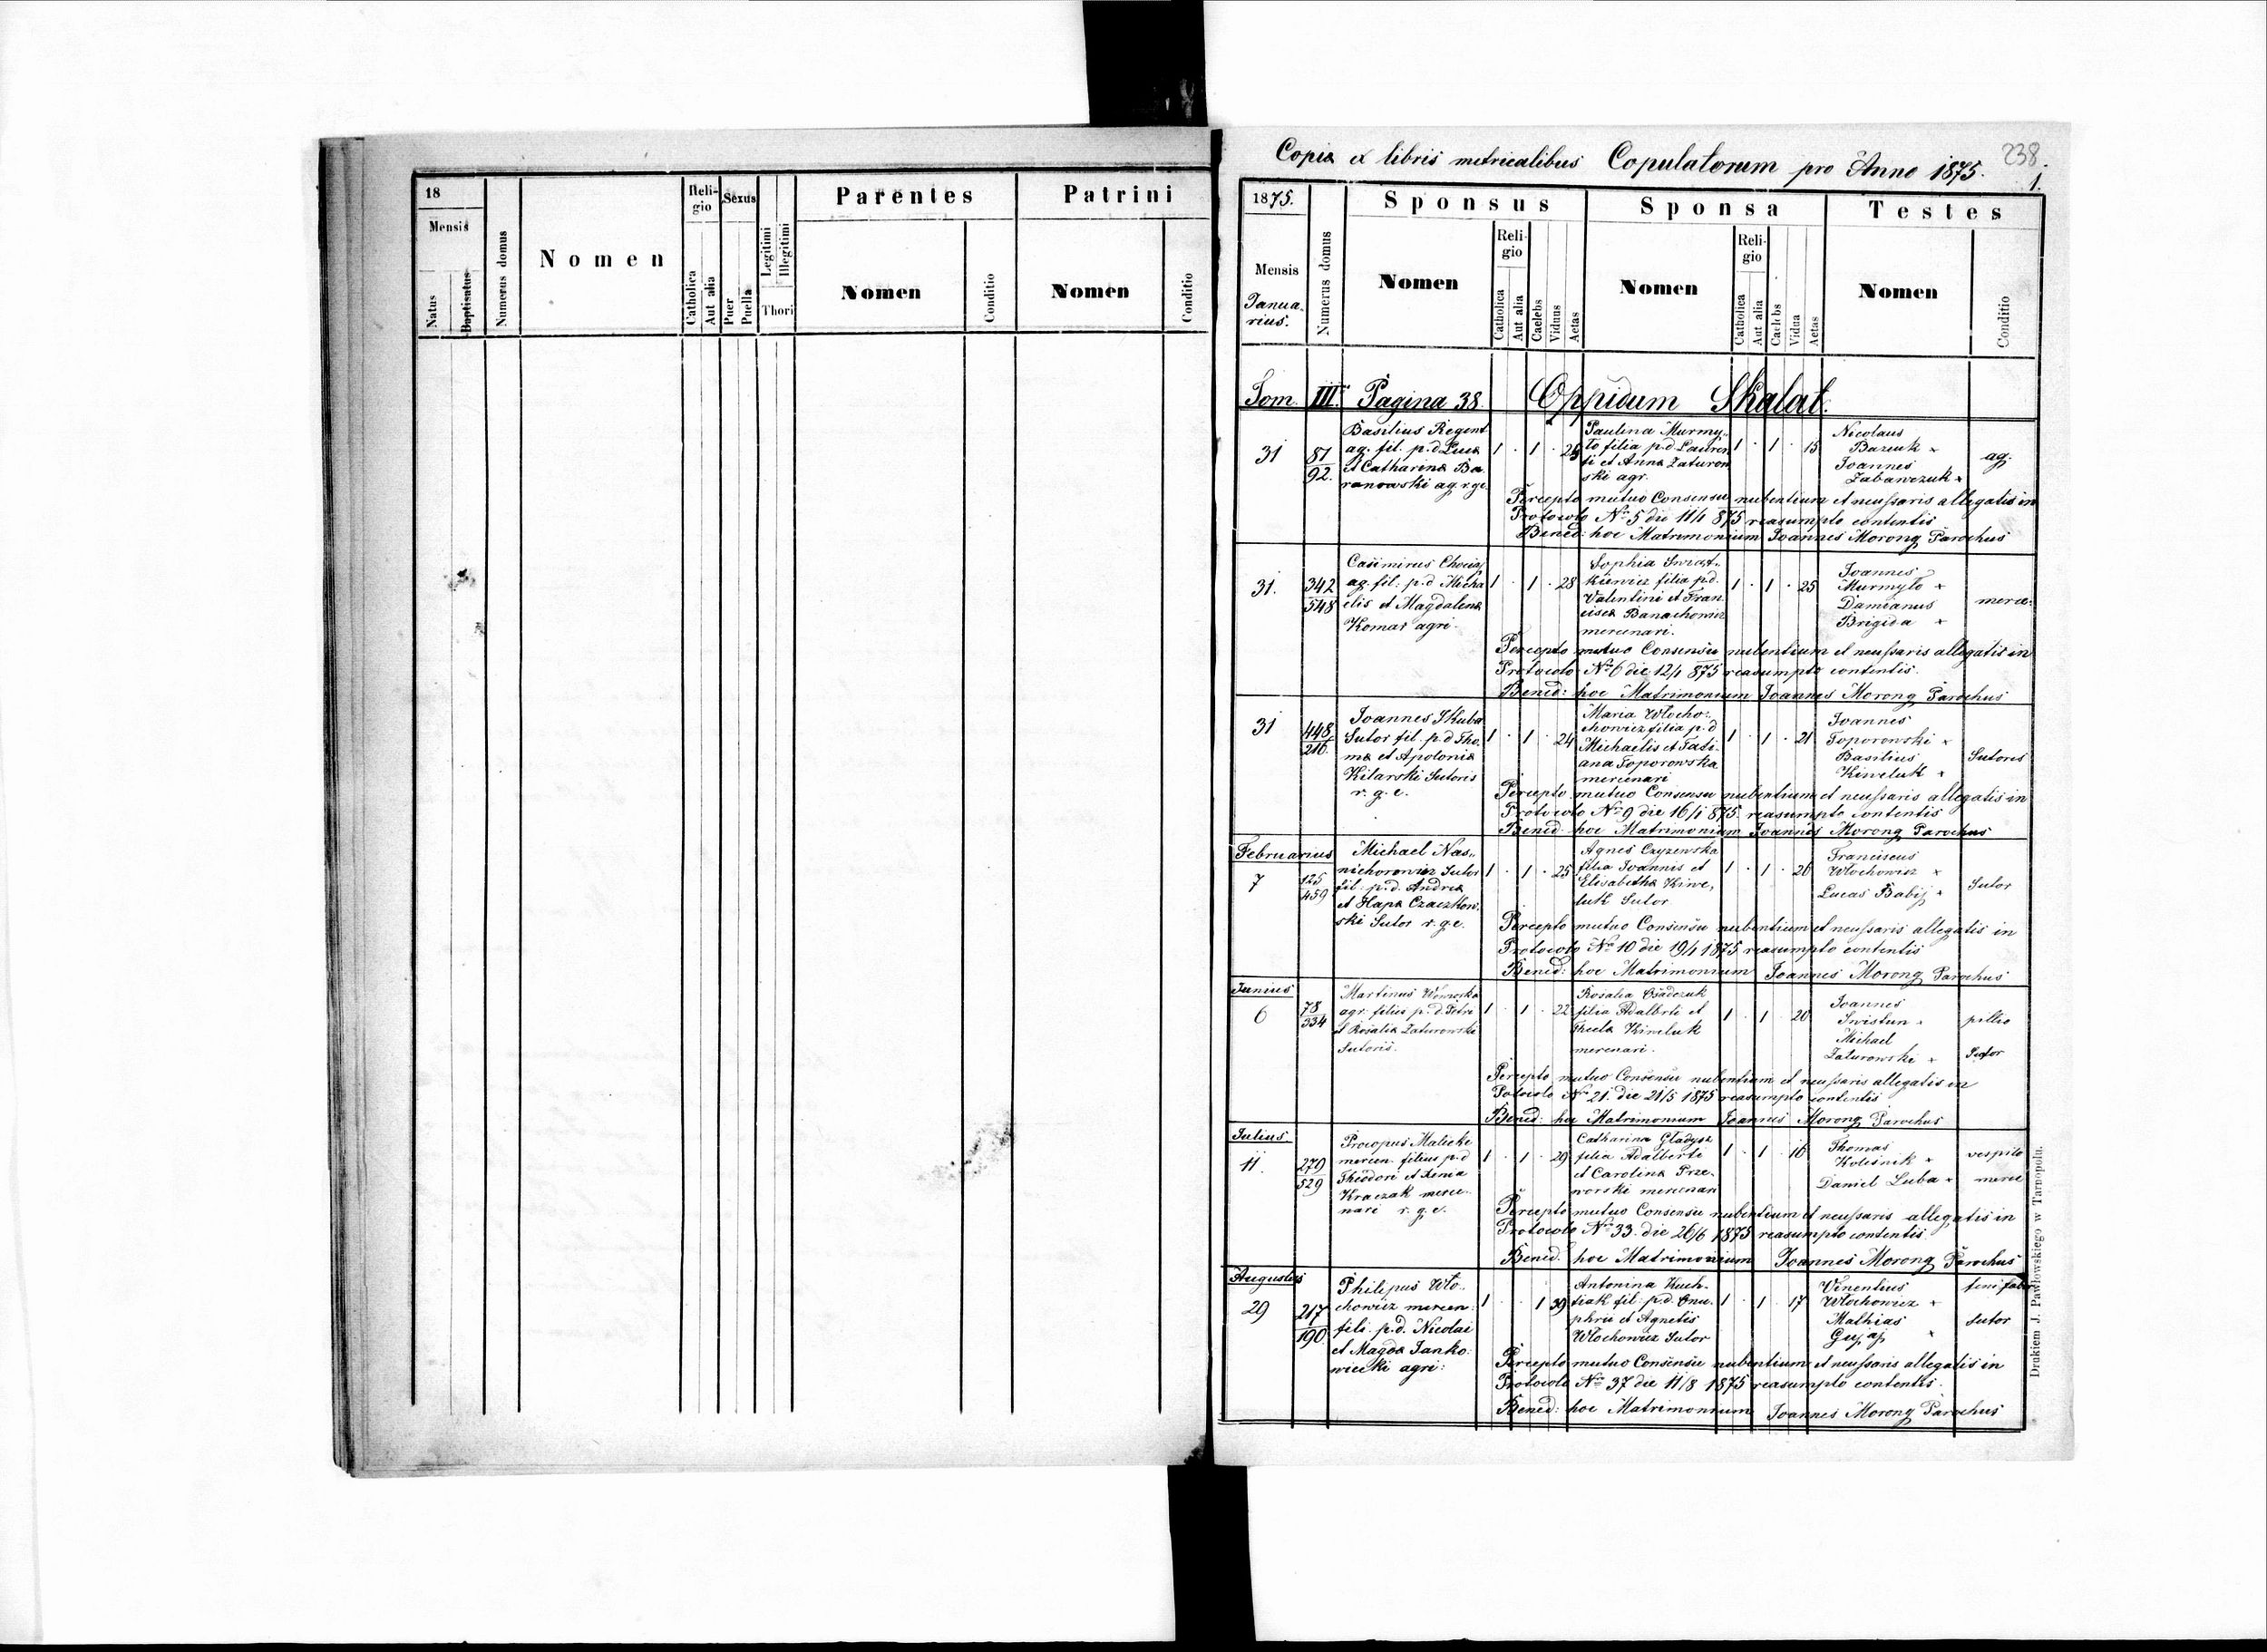 18
Mensis
Natus
Baptisatus
Numerus domus
Nomen
Reli-
gio
Catholica
Aut alia
Sexus
Puer
Puella
Legitimi
Illegitimi
Thori
Parentes
Nomen
Conditio
Patrini
Nomen
Conditio
Copia ex libris metricalibus Copulatorum pro Anno 1875.
238.
1.
1875.
Mensis
Janua-
rius.
Numerus domus
Sponsus
Nomen
Reli-
gio
Catholica
Aut alia
Caelebs
Viduus
Aetas
Sponsa
Nomen
Reli-
gio
Catholica
Aut alia
Caelebs
Vidua
Aetas
Testes
Nomen
Conditio
Tom. III. Pagina 38. Oppidum Skalat.
31
87
92.
Basilius Regent
ag. fil. p.d Luca
et Catharina Ba
ranowski ag. r.g.c.
1 . 1 . 25
Paulina Murmy„
ło filia p.d. Lauren
ti et Anna Zaturow
ski agr.
1 . 1 . 15
Nicolaus
Baziuk +
Joannes
Zabawczuk +
ag.
Percepto mutuo Consensu nubentium et neussaris allegatis in
Protocolo Nr 5 die 11/1 875 reasumpto contentis
Bened: hoc Matrimonium Joannes Morong Parochus
31.
342
548
Casimirus Chociaj
ag. fil: p.d Micha
elis et Magdalena
Komar agri.
1 . 1 . 28
Sophia Swiąt„
kiewicz filia p.d.
Valentini et Fran
cisca Banachowicz
mercenari.
1 . 1 . 25
Joannes
Murmyło +
Damianus
Brigida +
merce:
Percepto mutuo Consensu nubentium et neussaris allegatis in
Protocolo Nr 6 die 12/1 875 reasumpto contentis.
Bened: hoc Matrimonium Joannes Morong Parochus
31
448
216.
Joannes Skuba
Sutor fil. p.d Tho.
ma et Apolonia
Kitarski Sutoris
r. g. c.
1 . 1 . 24
Maria Włocho-
chowicz filia p.d
Michaelis et Tati-
ana Toporowska
mercenari
1 . 1 . 21
Joannes
Toporowski +
Basilius
Kiweluk +
Sutoris
Percepto mutuo Consensu nubentium et neussaris allegatis in
Protocolo Nr 9 die 16/1 875. reasumpto contentis
Bened: hoc Matrimonium Joannes Morong Parochus
Februarius
7
125
459
Michael Nas„
nichorowicz Sutor
fil. p.d. Andrea
et Hapa Czaczkow,
ski Sutor r.g.c.
1 . 1 . 25
Agnes Czyzewska
filia Joannis et
Elisabetha Kiwe,
luk Sutor
1 . 1 . 26
Franciscus
Włochowicz +
Lucas Babij +
Sutor
Percepto mutuo Consensu nubentium et neussaris allegatis in
Protocolo Nr 10 die 19/1 1875 reasumpto contentis
Bened: hoc Matrimonium Joannes Morong Parochus
Junius
6
78
334
Martinus
agr. filius p.d. Petri
et Rosalia Zaturowski
Sutoris.
1 . 1 . 22
Rosalia Osadczuk
filia Adalberti et
Thecla Kiweluk
mercenari.
1 . 1 . 20
Joannes
Swistun +
Michael
Zaturowski +
pellio
Sutor
Percepto mutuo Consensu nubentium et neussaris allegatis in
Potocolo Nr 21. die 21/5 1875 reasumpto contentis
Bened: hoc Matrimonium Joannes Morong Parochus
Julius
11.
279
529
Procopus Malicke
mercen. filius p.d
Theodori et Xenia
Kraczak merce-
nari r. g. c.
1 . 1 . 29
Catharina Gładysz
filia Adalberti
et Carolina Prze-
worski mercenari
1 . 1 . 16
Thomas
Kolesnik +
Daniel Luba +
vespilo
merce
Percepto mutuo Consensu nubentium et neussaris allegatis in
Protocolo Nr 33. die 26/6 1875 reasumpto contentis.
Bened. hoc Matrimonium Joannes Morong Parochus
Augustus
29
217
190.
Philipus Wło„
chowicz mercen:
fili. p.d. Nicolai
et Magda Janko:
wiecki agri:
1 . . 1 39
Antonina Kuch-
tiak fil: p.d. Onu.
phrii et Agnetis
Włochowicz Sutor
1 . 1 . 17
Vincentius
Włochowicz +
Mathias
Gujaj +
Sutor
Percepto mutuo Consensu nubentium et neussaris allegatis in
Protocolo Nr 37 die 11/8 1875 reasumpto contentis.
Bened: hoc Matrimonium Joannes Morong Parochus
Drukiem J. Pawłowskiego w Tarnopolu.